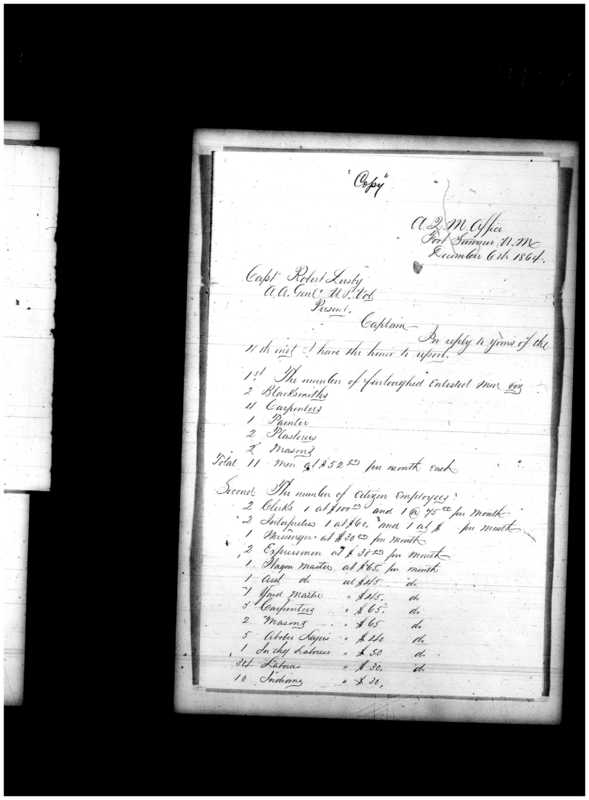 "Copy"
A. Q. M. Office
Fort Sumner, N. M.
December 6th 1864.
Capt Robert
A. A. Genl U.S. Vol
Present.
Captain
In reply to yours of the
4th inst I have the honor to report.
1st The number of furloughed Enlisted men viz
2 Blacksmiths
4 Carpenters
1 Painter
2 Plasterers
2 Masons
Total 11 men at $52.50 per month each
Second The number of Citizen Employees
2 Clerks 1 at $100.00 and 1 @ 75.00 per month
2 Interpreters 1 at $60. and 1 at $ per month
1 Messenger at $30.00 per month
2 Expressmen at $30.00 per month
1 Wagon Master at $65 per month
1 Asst do at $45. do
1 Yard Master " $45. do
Carpenters " $65. do
2 Masons " $65 do
5 Adobe " $40 do
1 in chg Laborers " $50 do
34 Labors " $30. do
10 Indians " $20.